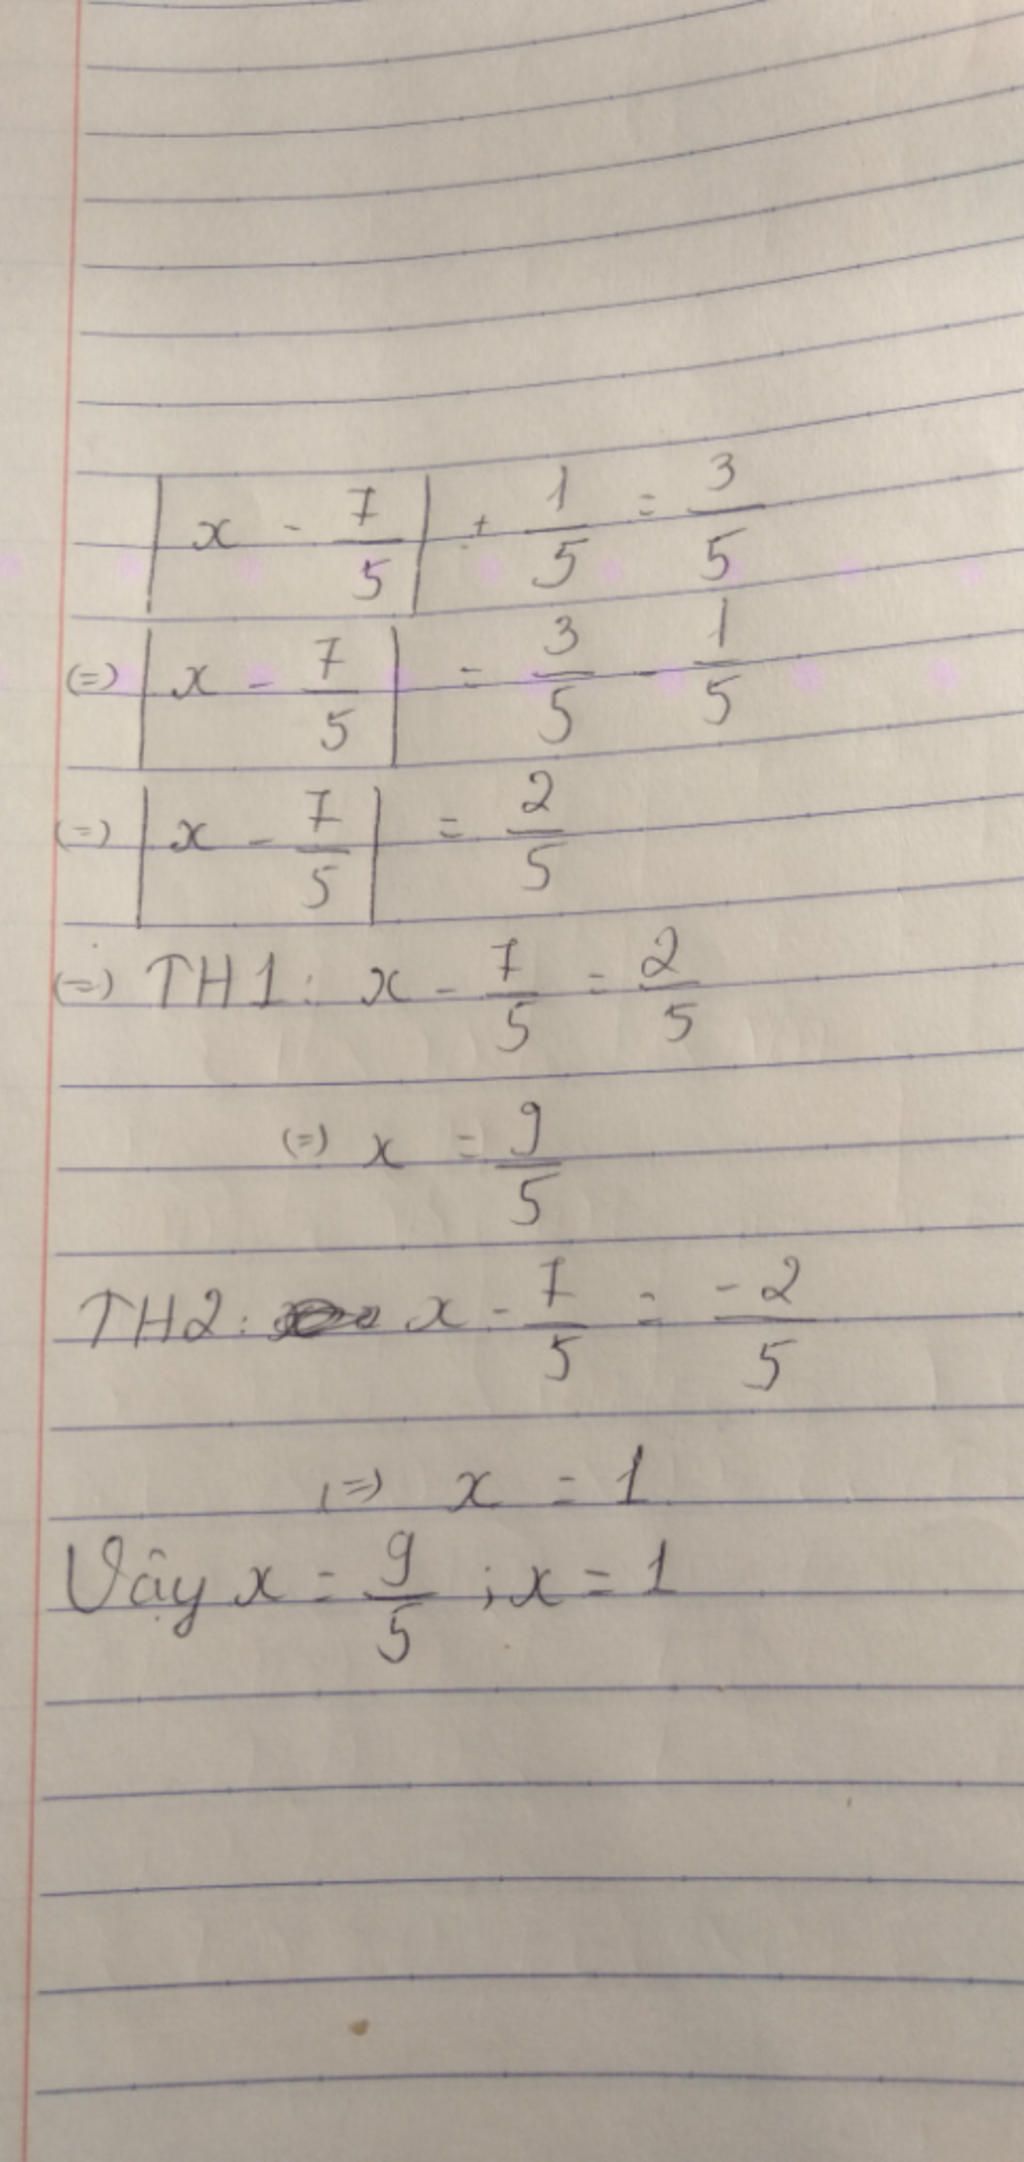 |x - 7/5| + 1/5 = 3/5
(=) |x - 7/5| = 3/5 - 1/5
(=) |x - 7/5| = 2/5
(=) TH1: x - 7/5 = 2/5
(=) x = 9/5
TH2: x - 7/5 = -2/5
(=) x = 1
Vậy x = 9/5 ; x = 1